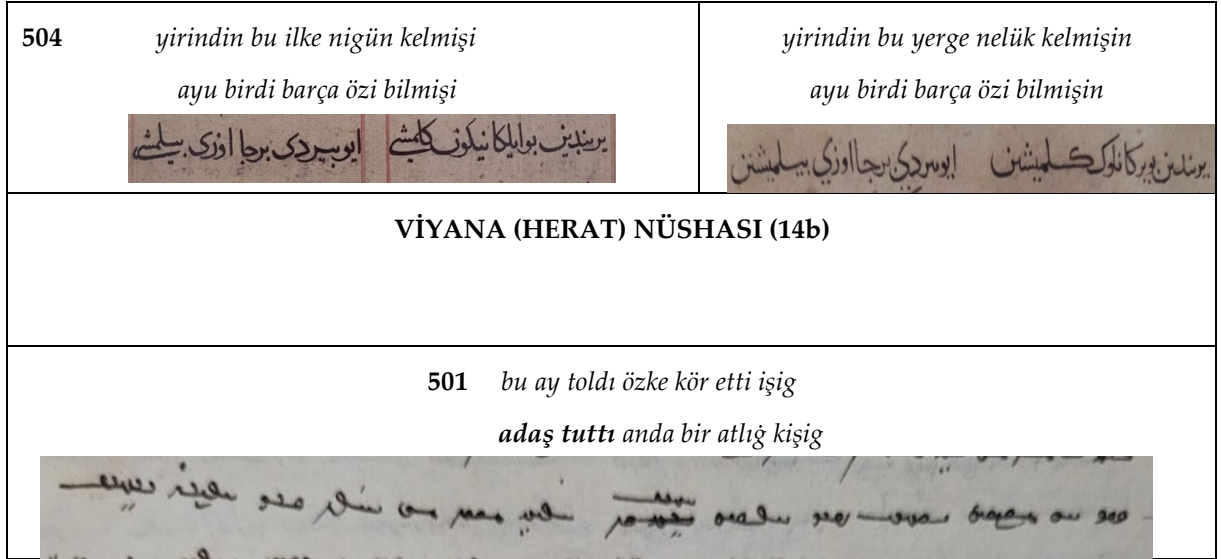 504 yirindin bu ilke nigün kelmişi
ayu birdi barça özi bilmişi
بوايلكا نيكون كلمشي ايوبيردى برجا اوزى بيلمشي
yirindin bu yerge nelük kelmişin
ayu birdi barça özi bilmişin
بويركا نلوك كلميشن ايوبيردي برجا اوزي بيلميشن
VİYANA (HERAT) NÜSHASI (14b)
501 bu ay toldı özke kör etti işig
adaş tuttı anda bir atlıġ kişig